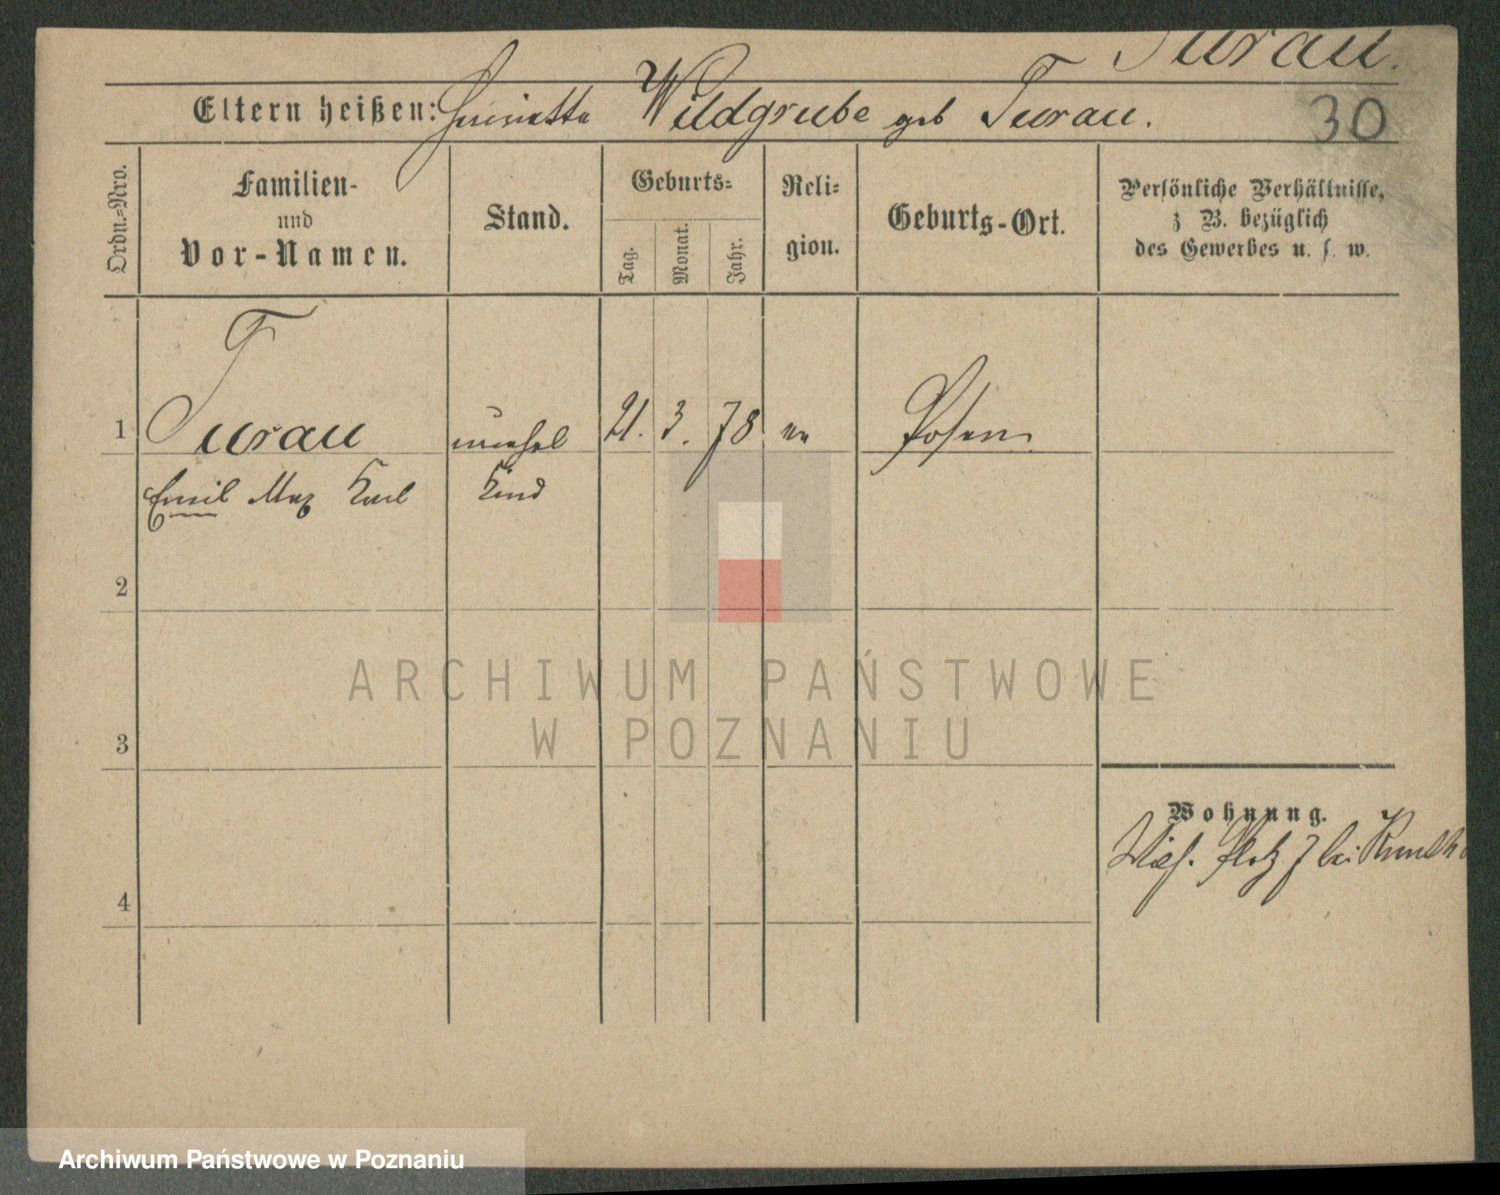 Turau.
Eltern heißen: Henriette Wildgrube geb Turau.
30
Ordn.=Nro.
Familien-
und
Vor-Namen.
Stand.
Geburts=
Tag.
Monat.
Jahr.
Reli=
gion.
Geburts-Ort.
Persönliche Verhältnisse,
z B. bezüglich
des Gewerbes u. s. w.
1 Turau unehel 21. 3. 78 ev Posen
Emil Max Karl Kind
2
3
4
Wohnung.
Platz 7 bei
ARCHIWUM PAŃSTWOWE
W POZNANIU
Archiwum Państwowe w Poznaniu